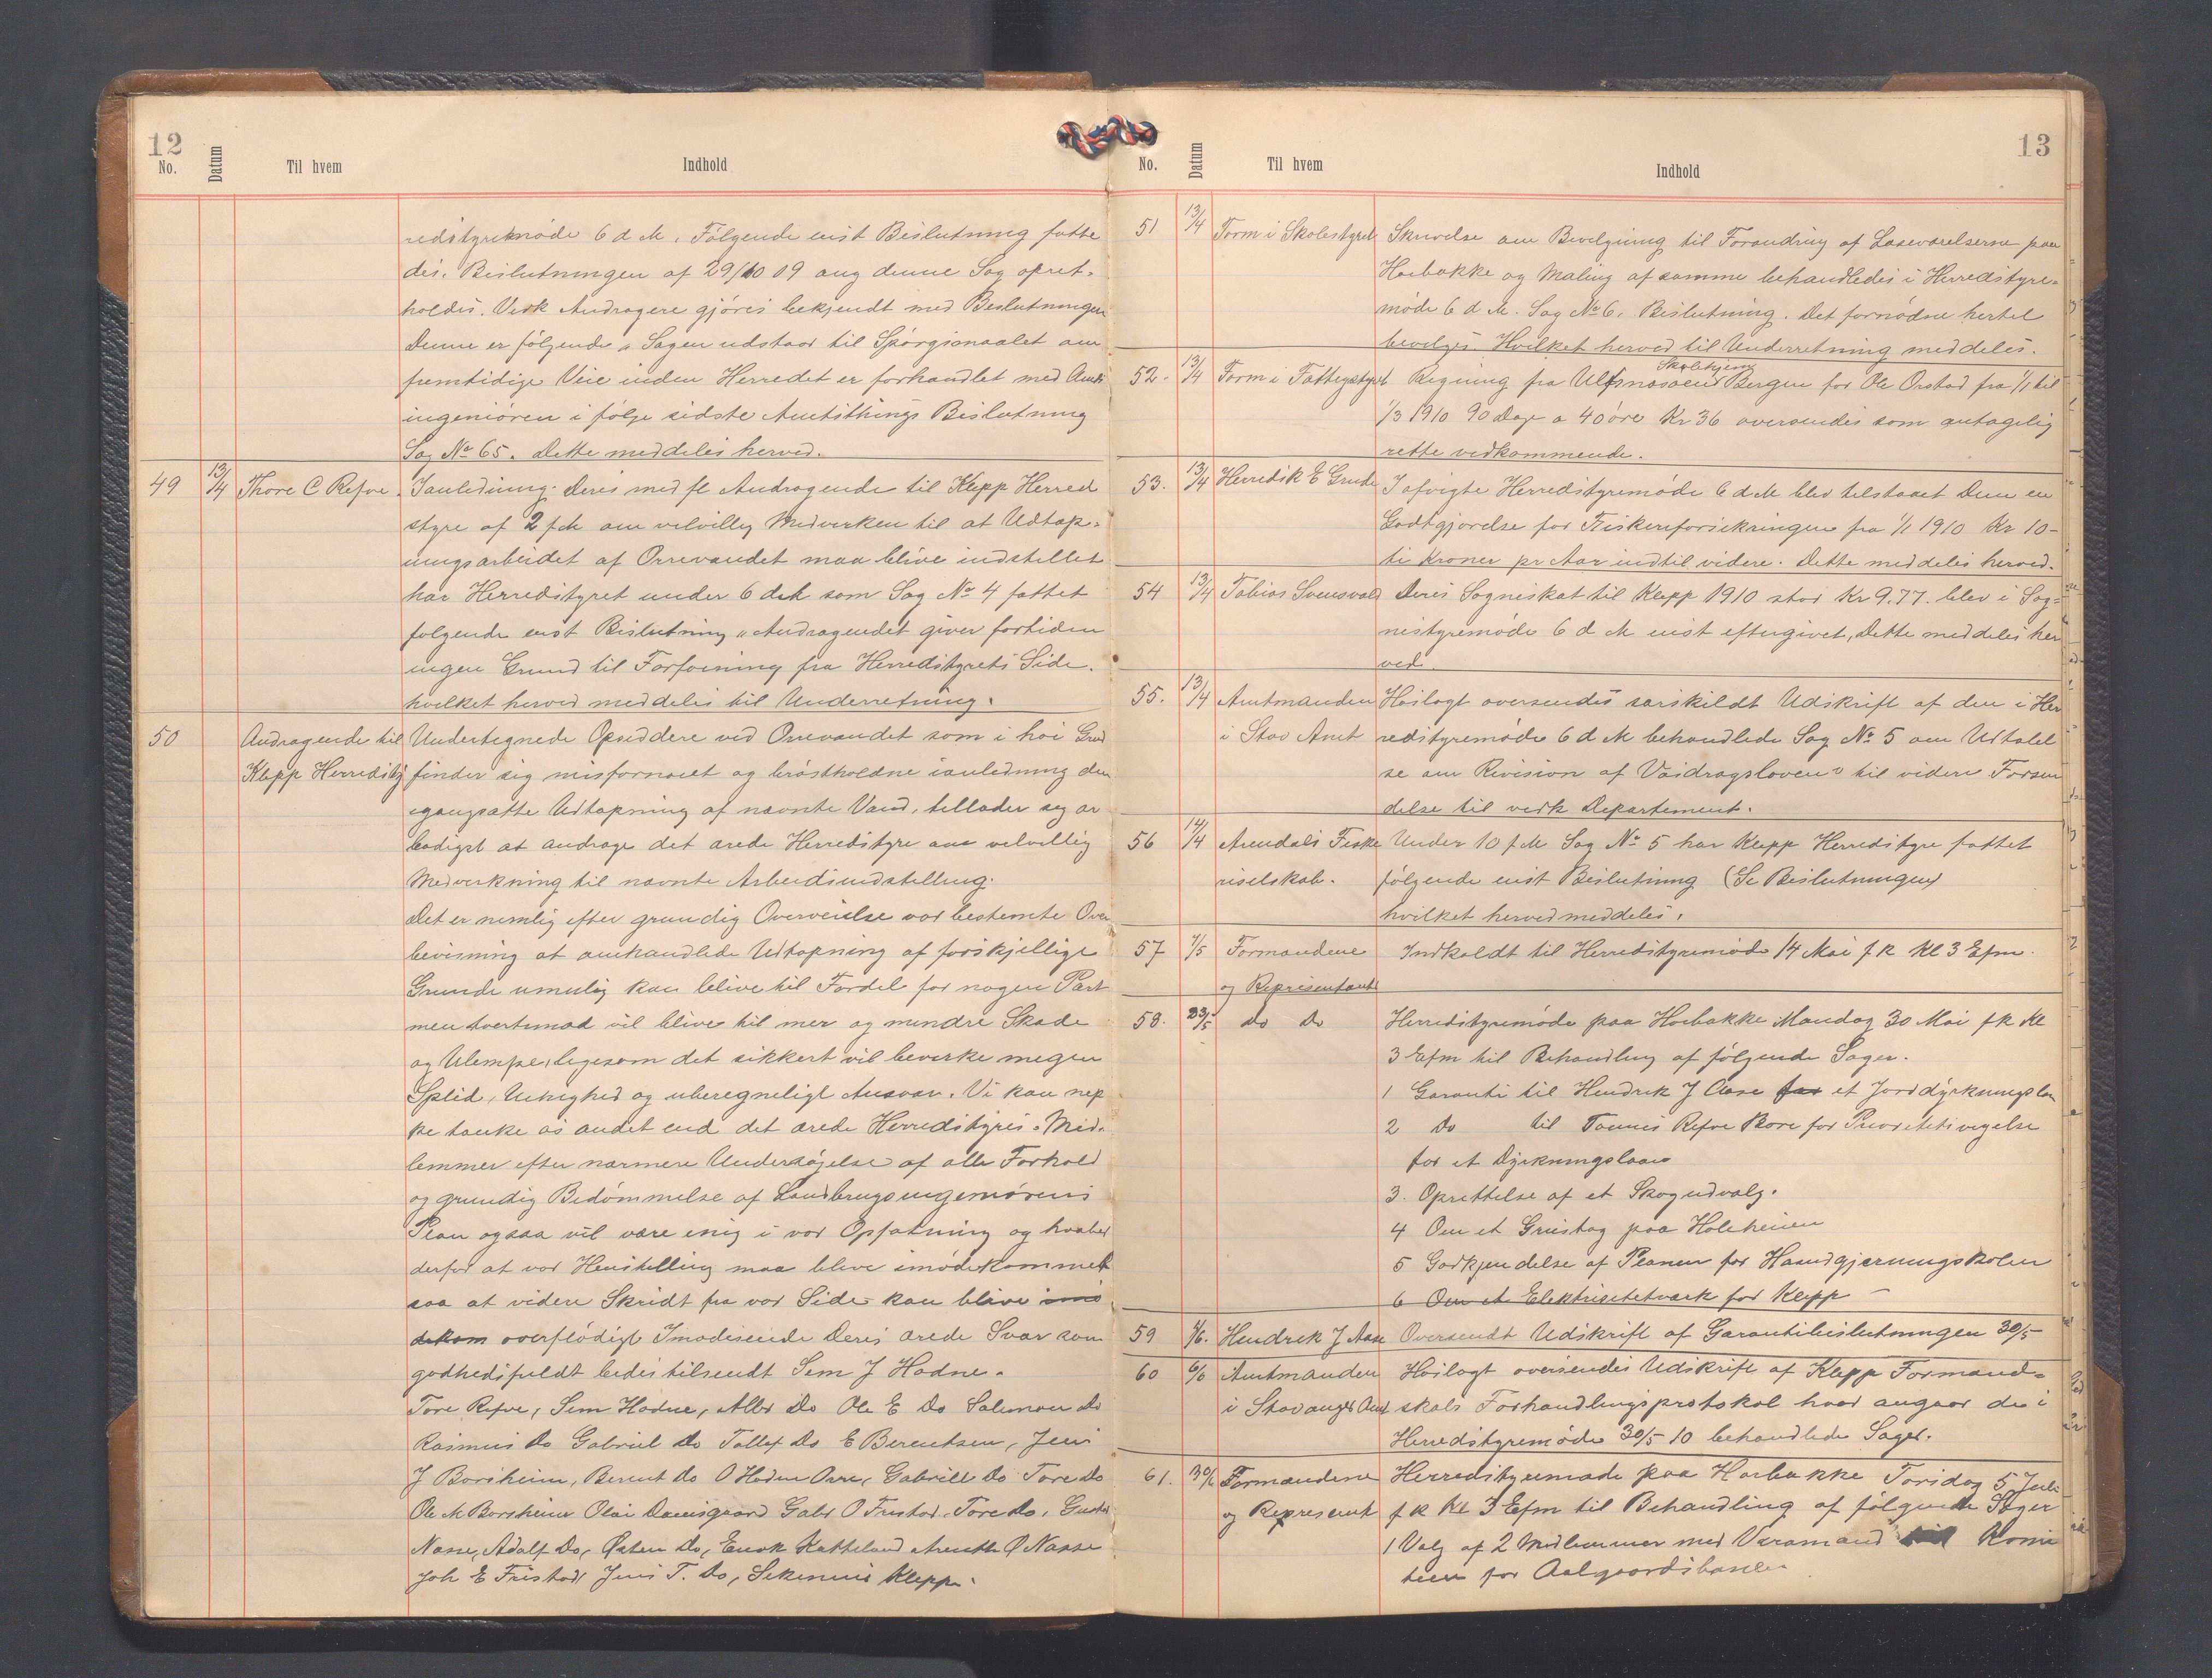 12
No. Datum Til hvem Indhold
redstyremøde 6 d M. Følgende enst Beslutning fatte
des. Beslutningen af 29/10 09 ang denne Sag opret-
holdes. Vedk Andragere gjøres bekjendt med Beslutningen
Denne er følgende „Sagen udstaar til Spørgsmaalet om
fremtidige Veie inden Herredet er forhandlet med Amts
ingeniøren i følge sidste Amtsthings Beslutning
Sag No 65. Dette meddeles herved.
49 13/4 Thore C Refve. Ianledning. Deres med fl Andragende til Klepp Herred
styre af 2 f M om velvillig Medvirken til at Udtap-
ningsarbeidet af Orrevandet maa blive indstillet
har Herredstyret under 6 d M som Sag No 4 fattet
følgende enst Beslutning „Andragendet giver fortiden
ingen Grund til Forføining fra Herredstyrets Side.
hvilket herved meddeles til Underretning.
50 Andragende til Undertegnede Opsiddere ved Orrevandet som i høi Grad
Klepp Herredstyr finder sig misfornøiet og brøstholdne ianledning den
igangsatte Udtapning af nævnte Vand, tillader sig ær
bødigst at andrage det ærede Herredstyre om velvillig
Medvirkning til nævnte Arbeidsindstilling.
Det er nemlig efter grundig Overveielse vor bestemte Over
bevisning at omhandlede Udtapning af forskjellige
Grunde umulig kan blive til Fordel for nogen Part
men tvertimod vil blive til mer og mindre Skade
og Ulempe, ligesom det sikkert vil bevirke megen
Splid, Uenighed og uberegneligt Ansvar. Vi kan nep
pe tænke os andet end det ærede Herredstyres Med-
lemmer efter nærmere Undersøgelse af alle Forhold
og grundig Bedømmelse af Landbrugsingeniørens
Plan ogsaa vil være enig i vor Opfatning og haaber
derfor at vor Henstilling maa blive imødekommet
saa at videre Skridt fra vor Side kan blive imø
dekom overflødigt Imødeseende Deres ærede Svar som
godhedsfuldt bedes tilsendt Sem J Hodne.
Tore Refve, Sem Hodne, Albr Do Ole E Do Salomon Do
Rasmus Do Gabriel Do Tollef Do E Berentsen, Jens
J Borsheim, Berent Do O Hodne Orre, Gabriel Do Tore Do
Ole M Borsheim Olai Gabr O Frustad. Tore Do,
Nasse, Adolf Do, Østen Do, Enok Katteland O Nasse
Joh E Frustad, Jens T. Do, Sekenius Klepp.
13
No. Datum Til hvem Indhold
51 13/4 Form i Skolestyret Skrivelse om Bevilgning til Forandring af Læseværelserne paa
Horbakke og Maling af samme behandledes i Herredstyre-
møde 6 d M. Sag No 6. Beslutning. Det fornødne hertil
bevilges. Hvilket herved til Underretning meddeles.
Skolehjem
52. 13/4 Form i Fattigstyret Regning fra Ulfsnesøens Bergen for Ole Orstad fra 1/1 til
1/3 1910 90 Dage a 40 øre Kr 36 oversendes som antagelig
rette vedkommende.
53. 13/4 Herredsk E Grude I afvigte Herredstyremøde 6 d M blev tilstaaet Dem en
Godtgjørelse for Fiskeriforsikringen fra 1/1 1910 Kr 10-
ti Kroner pr Aar indtil videre. Dette meddeles herved.
54 13/4 Tobias Svensvold Deres Sogneskat til Klepp 1910 stor Kr 9.77. blev i Sog-
nestyremøde 6 d M enst eftergivet, Dette meddeles her
ved.
55. 13/4 Amtmanden Hoslagt oversendes særskildt Udskrift af den i Her
i Stav Amt redstyremøde 6 d M behandlede Sag No 5 om Udtalel
se om Revision af Vasdragsloven til videre Forsen
delse til vedk Departement.
56 14/4 Arendals Fiske Under 10 f M Sag No 5 har Klepp Herredstyre fattet
riselskab. følgende enst Beslutning (Se Beslutningen)
hvilket herved meddeles.
57 7/5 Formændene Indkaldt til Herredstyremøde 14 Mai f k Kl 3 Efm.
og Representant
58. 23/5 Do Do Herredstyremøde paa Horbakke Mandag 30 Mai f k Kl
3 Efm til Behandling af følgende Sager.
1 Garanti til Hendrik J Aase for et Jorddyrkningslaan
2 Do til Tønnes Refve Bore for Prioritetsvigelse
for et Dyrkningslaan
3. Oprettelse af et Skogudvalg.
4 Om et Grustag paa Holeheien
5 Godkjendelse af Planen for Haandgjerningskolen
6 Om et Elektrisitetværk for Klepp
59 1/6. Hendrik J Aase Oversendt Udskrift af Garantibeslutningen 30/5
60 6/6 Amtmanden Hoslagt oversendes Udskrift af Klepp Formand-
i Stavanger Amt skabs Forhandlingsprotokol hvad angaar de i
Herredstyremøde 30/5 10 behandlede Sager.
61. 30/6 Formændene Herredstyremøde paa Horbakke Tirsdag 5 Juli
og Represent f k Kl 3 Efm til Behandling af følgende Sager
1 Valg af 2 Medlemmer med Varamænd til Komi
teen for Aalgaardsbanen